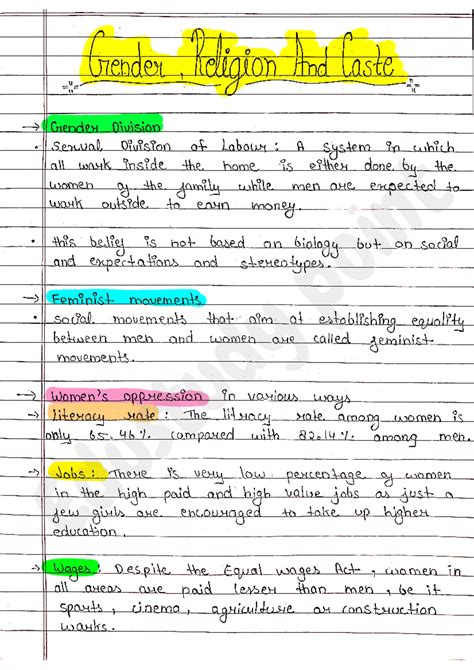 Gender, Religion And Caste
→ Gender Division
• Sexual Division of Labour : A system in which
all work inside the home is either done by the
women of the family while men are expected to
work outside to earn money.
• this belief is not based on biology but on social
and expectations and stereotypes.
→ Feminist movements
• social movements that aim at establishing equality
between men and women are called feminist
movements.
→ Women's oppression in various ways
→ literacy rate : The litracy rate among women is
only 65.46% compared with 82.14% among men.
→ Jobs : There is very low percentage of women
in the high paid and high value jobs as just a
few girls are encouraged to take up higher
education.
→ Wages : Despite the Equal wages Act, women in
all areas are paid lesser than men, be it
sparts, cinema, agriculture or construction
works.
study point